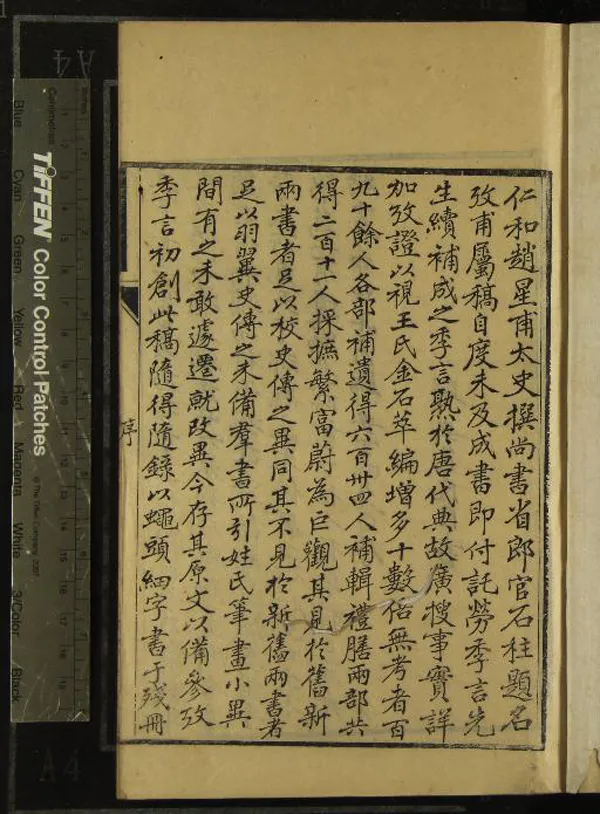 仁和趙星甫太史撰尚書省郎官石柱題名
攷甫屬稿自度未及成書即付託勞季言先
生續補成之季言熟於唐代典故廣搜事實詳
加攷證以視王氏金石萃編增多十數倍無考者百
九十餘人各部補遺得六百卅四人補輯禮膳兩部共
得二百十一人採摭繁富蔚為巨觀其見於舊新
兩書者足以校史傳之異同其不見於新舊兩書者
足以羽翼史傳之未備羣書所引姓氏筆畫小異
間有之未敢遽遷就改異今存其原文以備參攷
季言初創此稿隨得隨錄以蠅頭細字書于殘冊
序
A4
Centimetres
TIFFEN Color Control Patches
© The Tiffen Company, 2007
Blue
Cyan
Green
Yellow
Red
Magenta
White
3/Color
Black
A4